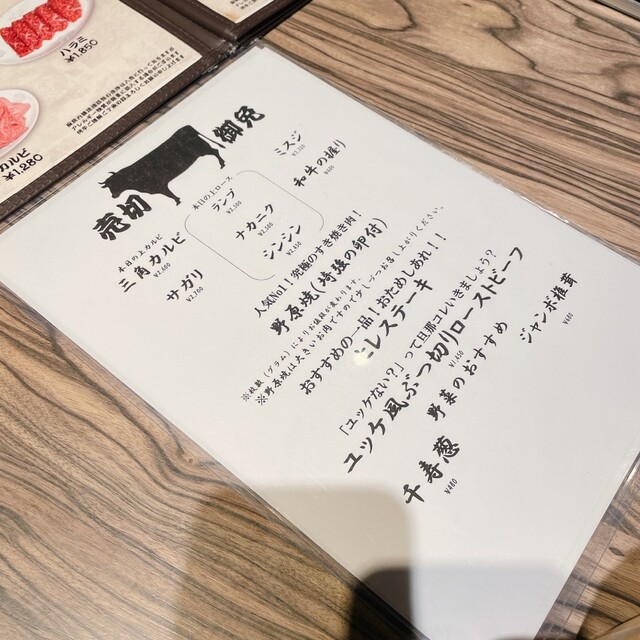 ハラミ
¥1,850
カルビ
¥1,380
売切
御免
ミスジ
和牛の握り
本日の上ロース
ランプ
ナカニク
シンシン
本日の上カルビ
三角カルビ
サガリ
人気No1！究極のすき焼き肉！
野原焼(特選の卵付)
※枚数（グラム）によりお値段が変わります。
※野原焼は大きいお肉ですのでイチ、二ーッとお召し上がりください。
おすすめの一品！おためしあれ！！
ヒレステーキ
「ユッケない？」って旦那コレいきましょう？
ユッケ風ぶつ切りローストビーフ
¥1,450
野菜のおすすめ
千寿葱
¥480
ジャンボ椎茸